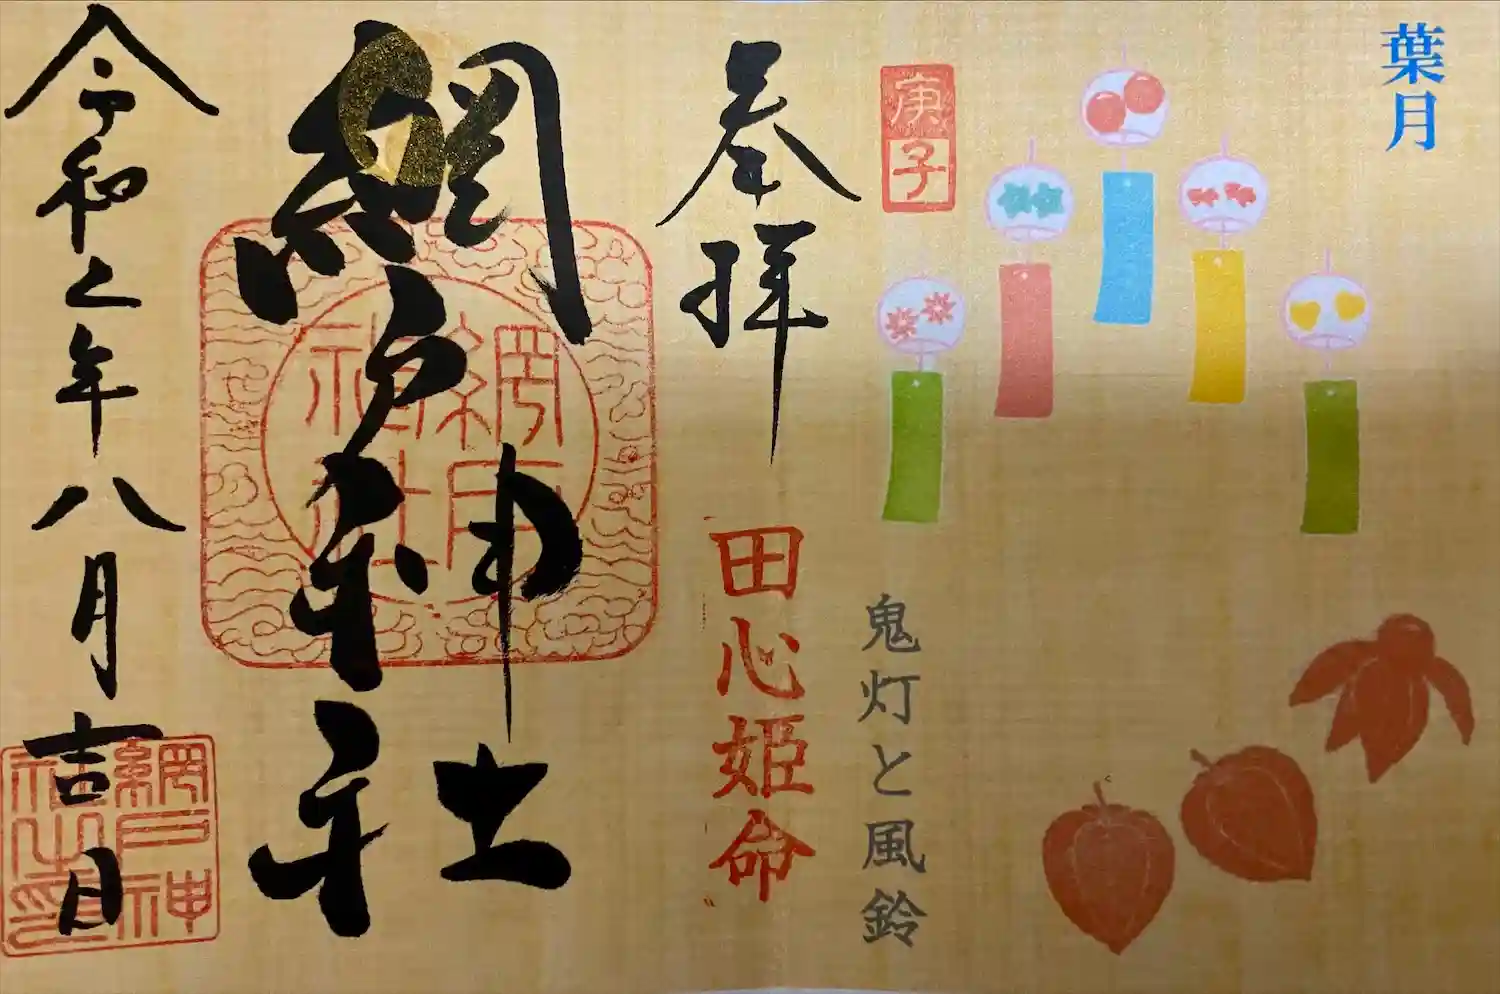 葉月
庚子
鬼灯と風鈴
奉拝
田心姫命
網戸神社
網戸神社
令和乙年八月吉日
網戸神社之印